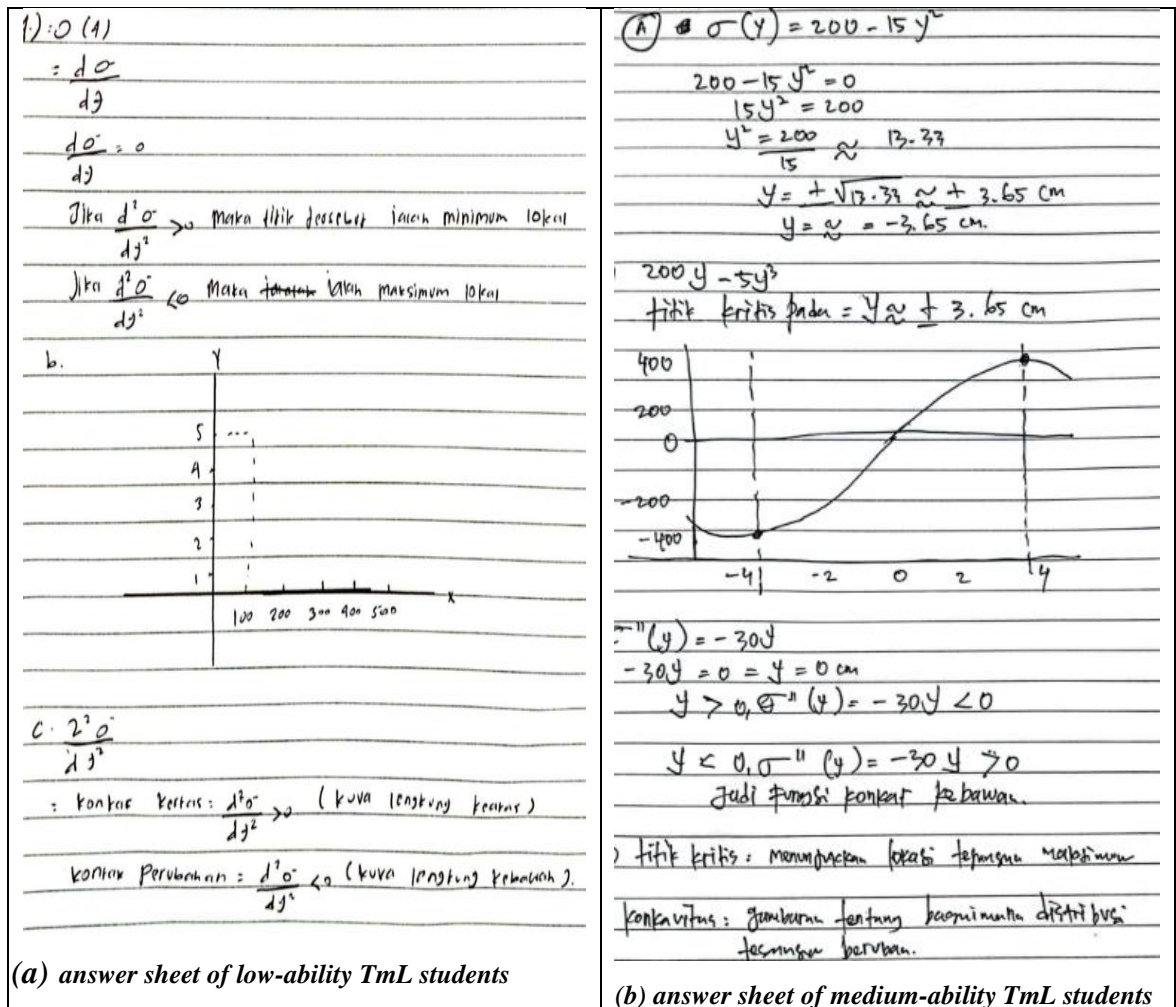 1.) : O (1)
= dσ
dy
dσ = 0
dy
Jika d²σ/dy² >0 maka titik tersebut ialah minimum lokal
Jika d²σ/dy² <0 maka ialah maksimum lokal
b. Y
5
4
3
2
1
100 200 300 400 500 x
C. 2²σ
dy²
: d²σ/dy² >0 (kuva lengkung keatas)
Perubahan = d²σ/dy² <0 (kuva lengkung kebawah).
(a) answer sheet of low-ability TmL students
A σ(y) = 200 - 15y²
200 - 15y² = 0
15y² = 200
y² = 200/15 ≈ 13.33
y = ± √13.33 ≈ ± 3.65 cm
y = ≈ = -3.65 cm.
200y - 5y³
titik kritis pada = y ≈ ± 3.65 cm
400
200
0
-200
-400
-4 -2 0 2 4
σ"(y) = -30y
-30y = 0 = y = 0 cm
y > 0, σ"(y) = -30y < 0
y < 0, σ"(y) = -30y > 0
Jadi fungsi konkaf kebawah.
) titik kritis : menunjuckan lokasi maksimum
konkavitas : tentang distribusi
berubah.
(b) answer sheet of medium-ability TmL students